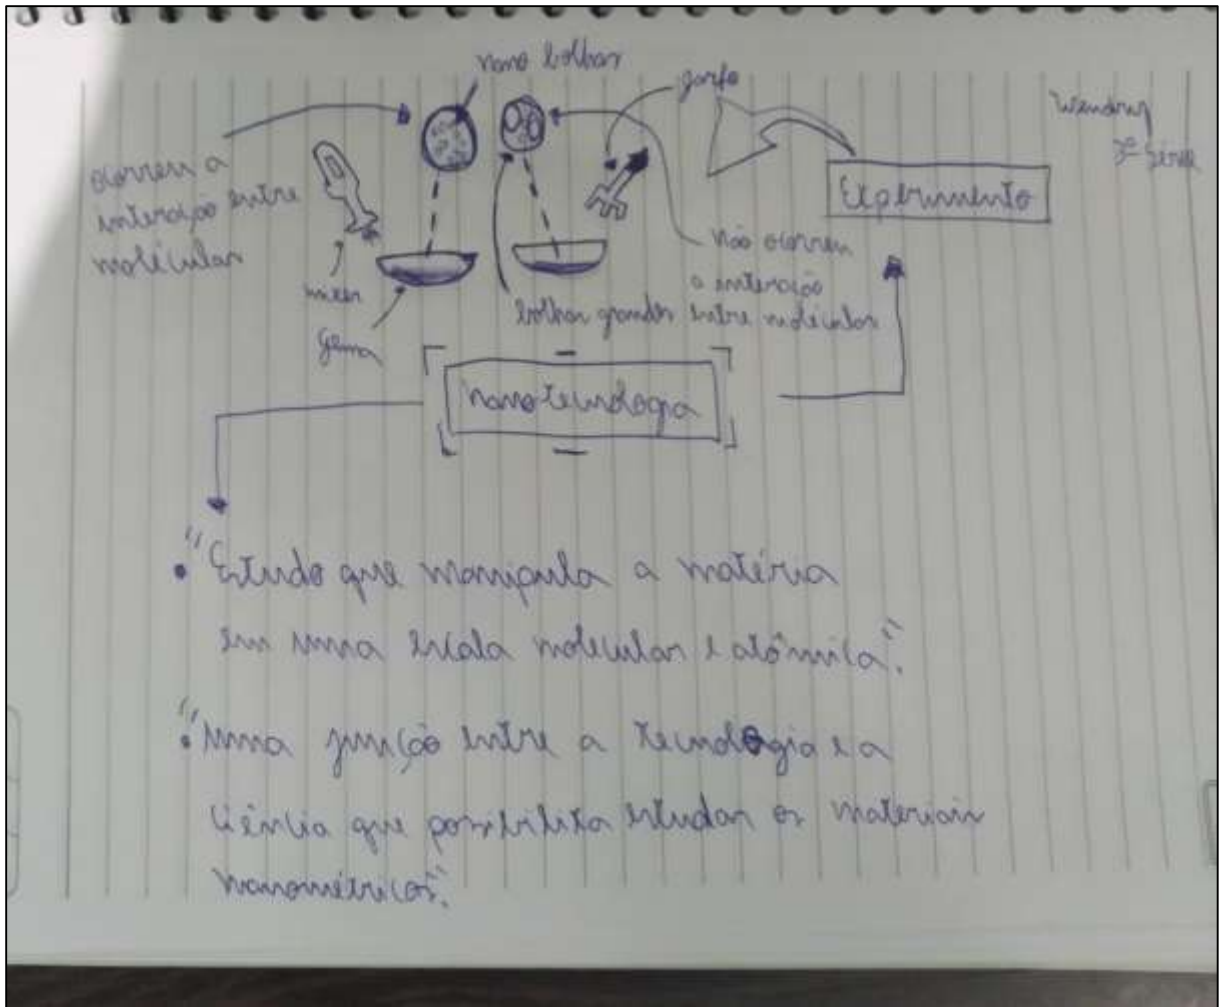 nano bolhas
garfo
Wendny
3ª série
ocorreu a
interação entre
moléculas
Experimento
não ocorreu
a interação
entre moléculas
mixer
bolhas grandes
gema
nanotecnologia
• "Estudo que manipula a matéria
em uma escala molecular e atômica".
• "Uma junção entre a tecnologia e a
ciência que possibilita estudar os materiais
nanométricos".